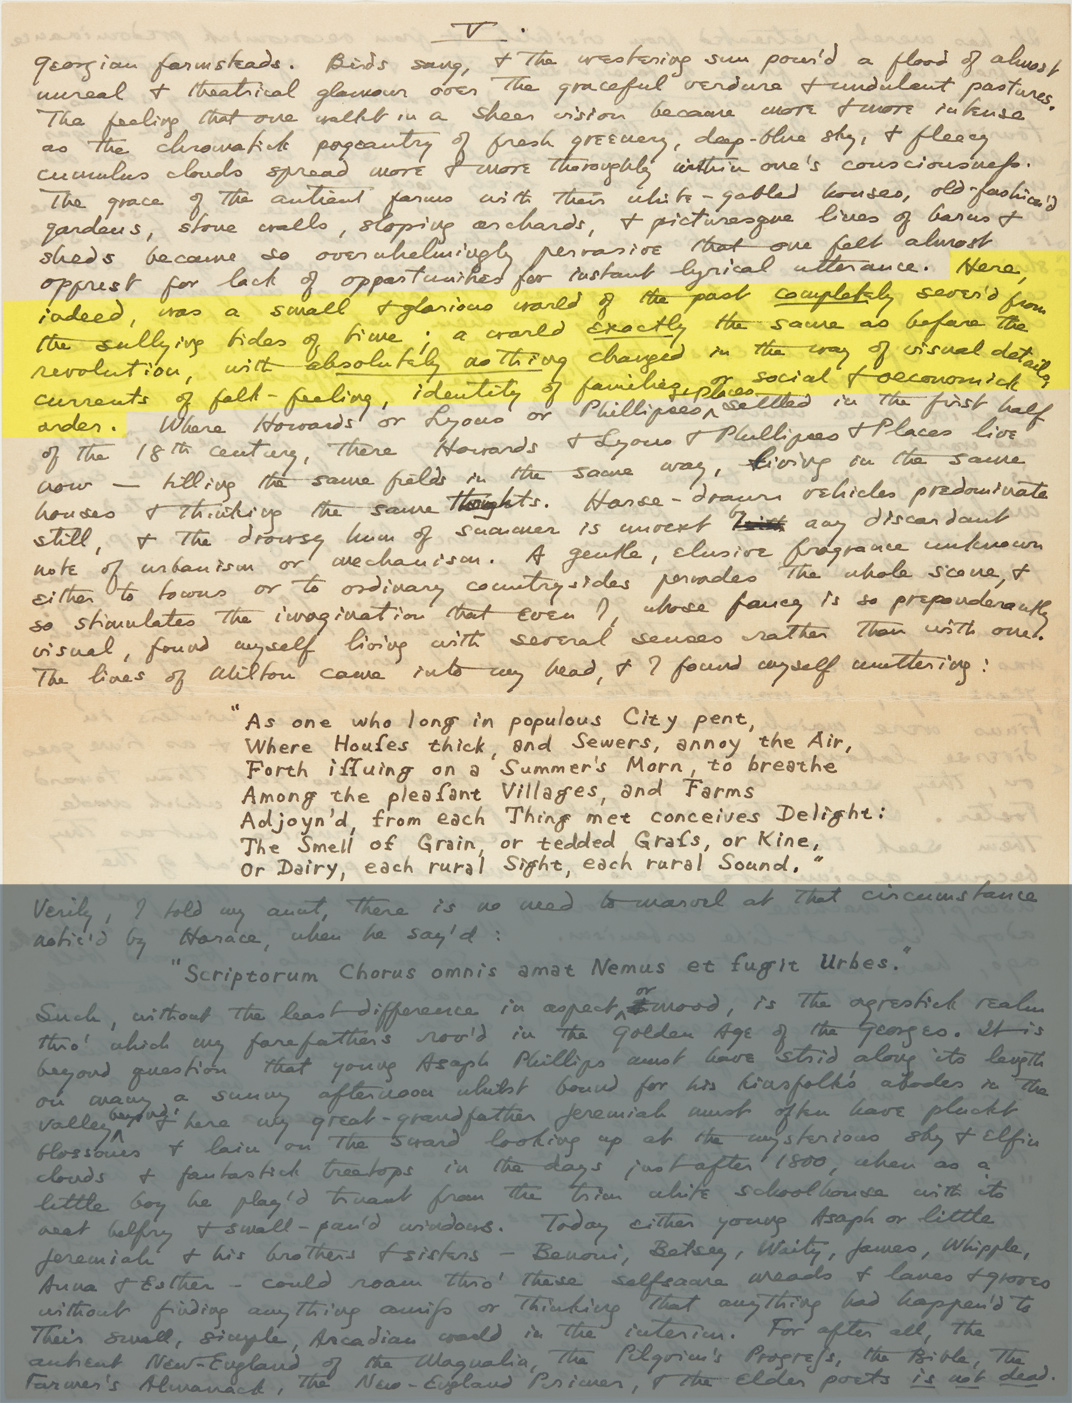 V.
Georgian farmsteads. Birds sang, & the westering sun pour'd a flood of almost
unreal & theatrical glamour over the graceful verdure & undulant pastures.
The feeling that one walkt in a sheer vision became more & more intense
as the chromatick pageantry of fresh greenery, deep-blue sky, & fleecy
cumulus clouds spread more & more thoroughly within one's consciousness.
The grace of the antient farms with their white-gabled houses, old-fashion'd
gardens, stone walls, sloping orchards, & picturesque lines of barns &
sheds became so overwhelmingly pervasive that one felt almost
opprest for lack of opportunities for instant lyrical utterance. Here,
indeed, was a small & glorious world of the past completely sever'd from
the sullying tides of time; a world exactly the same as before the
revolution, with absolutely nothing changed in the way of visual details,
currents of folk-feeling, identity of families, or social & oeconomick
order. Where Howards or Lyons or Phillipses, & Places settled in the first half
of the 18th century, there Howards & Lyons & Phillipses & Places live
now — tilling the same fields in the same way, living in the same
houses & thinking the same thoughts. Horse-drawn vehicles predominate
still, & the drowsy hum of summer is unvext by any discordant
note of urbanism or mechanism. A gentle, elusive fragrance unknown
either to towns or to ordinary countrysides pervades the whole scene, &
so stimulates the imagination that even I, whose fancy is so preponderantly
visual, found myself living with several senses rather than with one.
The lines of Milton came into my head, & I found myself muttering:
"As one who long in populous City pent,
Where Houſes thick, and Sewers, annoy the Air,
Forth iſſuing on a Summer's Morn, to breathe
Among the pleaſant Villages, and Farms
Adjoyn'd, from each Thing met conceives Delight:
The Smell of Grain, or tedded Graſs, or Kine,
Or Dairy, each rural Sight, each rural Sound."
Verily, I told my aunt, there is no need to marvel at that circumstance
notic'd by Horace, when he say'd:
"Scriptorum Chorus omnis amat Nemus et fugit Urbes."
Such, without the least difference in aspect or mood, is the agrestick realm
thro' which my forefathers rov'd in the Golden Age of the Georges. It is
beyond question that young Asaph Phillips must have strid along its length
on many a sunny afternoon whilst bound for his kinsfolk's abodes in the
valley beyond; & here my great-grandfather Jeremiah must often have pluckt
blossoms & lain on the sward looking up at the mysterious sky & elfin
clouds & fantastick treetops in the days just after 1800, when as a
little boy he play'd truant from the trim white schoolhouse with its
neat belfry & small-pan'd windows. Today either young Asaph or little
Jeremiah & his brothers & sisters — Benoni, Betsey, Waity, James, Whipple,
Anna & Esther — could roam thro' these selfsame meads & lanes & groves
without finding anything amiſs or thinking that anything had happen'd to
their small, simple, Arcadian world in the interim. For after all, the
antient New-England of the Magnalia, the Pilgrim's Progreſs, the Bible, the
Farmer's Almanack, the New-England Primer, & the elder poets is not dead.